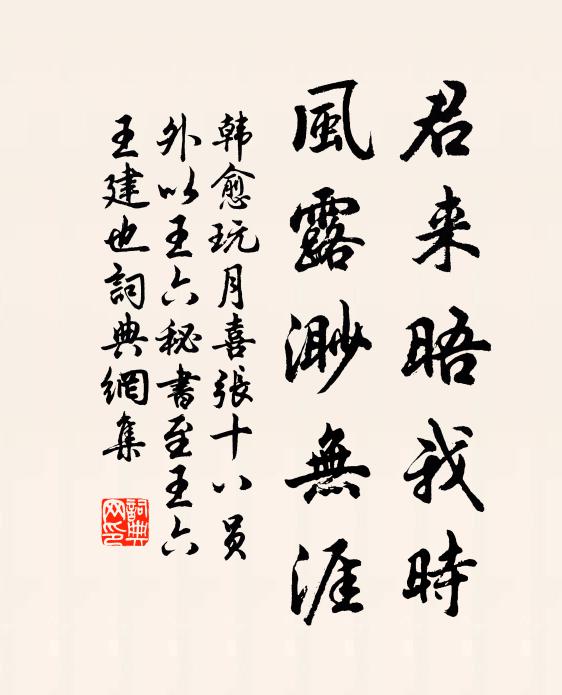 君来晤我時
風露渺無涯
韩愈玩月喜張十八员
外以王六秘書至王六
王建也詞典網集
詞典網印